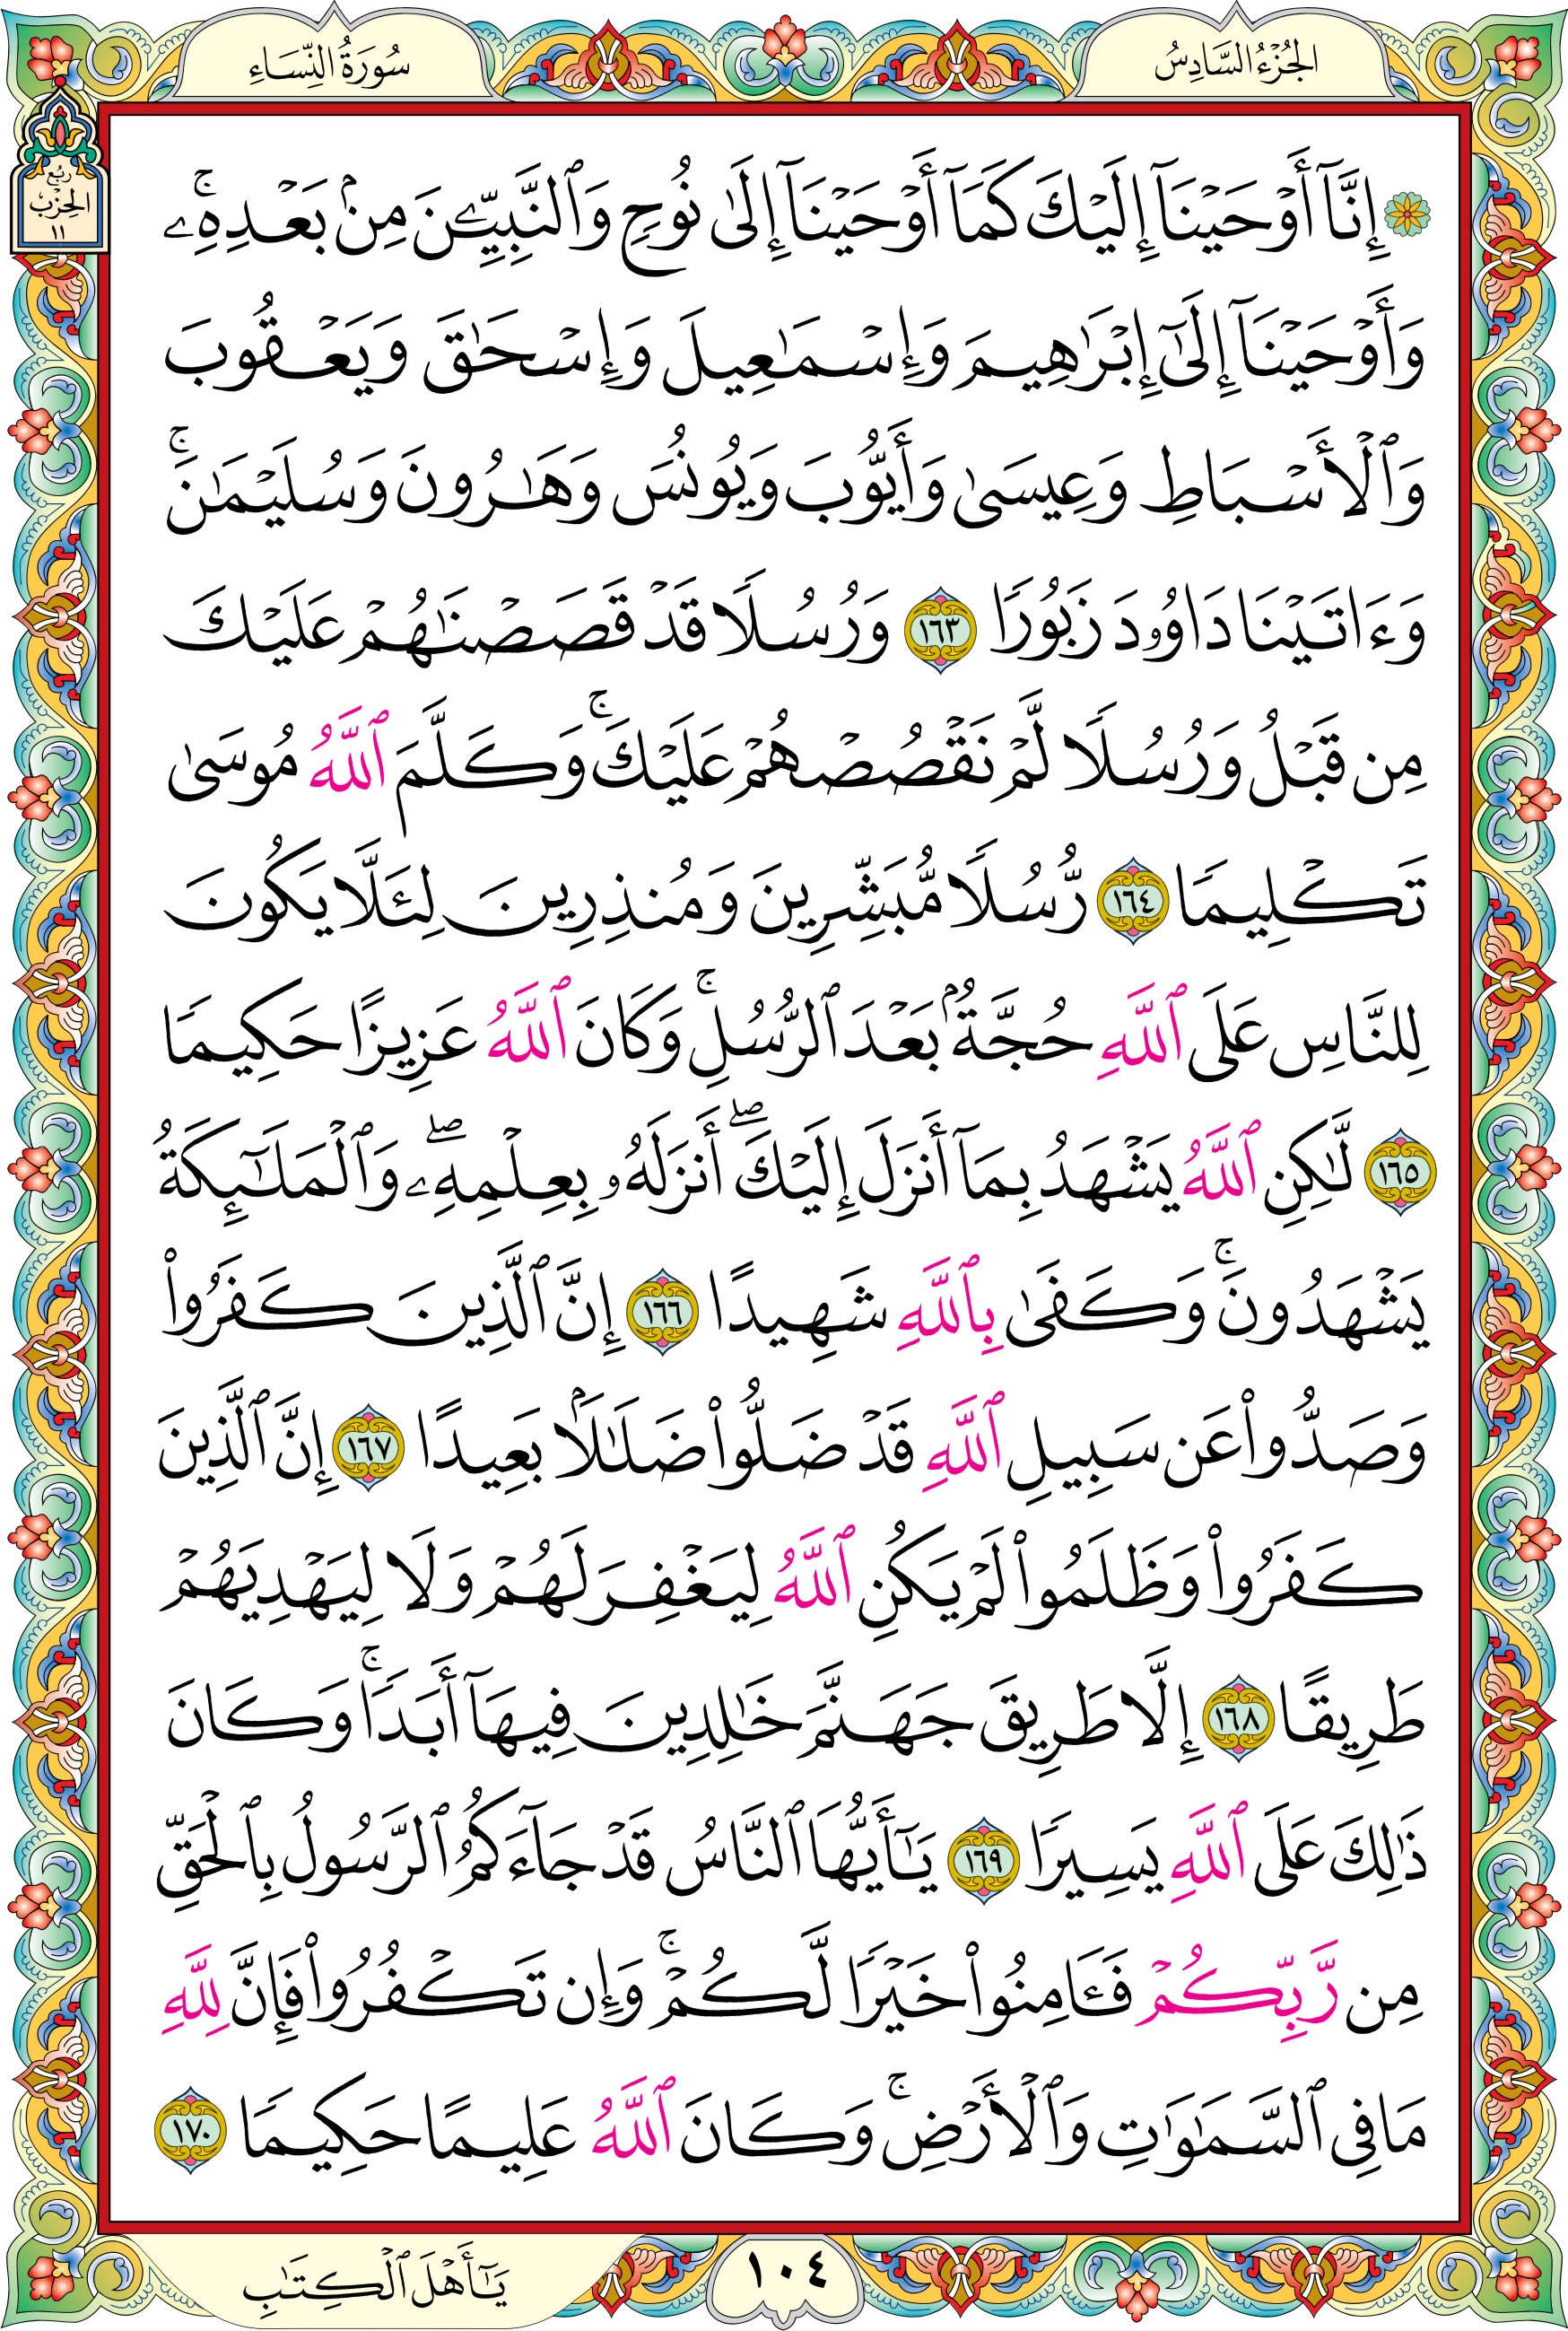 الجُزْءُ السَّادِسُ
سُورَةُ النِّسَاءِ
رُبُع
الحِزْب
١١
۞ إِنَّآ أَوْحَيْنَآ إِلَيْكَ كَمَآ أَوْحَيْنَآ إِلَىٰ نُوحٍ وَٱلنَّبِيِّـۧنَ مِنۢ بَعْدِهِۦۚ
وَأَوْحَيْنَآ إِلَىٰٓ إِبْرَٰهِيمَ وَإِسْمَـٰعِيلَ وَإِسْحَـٰقَ وَيَعْقُوبَ
وَٱلْأَسْبَاطِ وَعِيسَىٰ وَأَيُّوبَ وَيُونُسَ وَهَـٰرُونَ وَسُلَيْمَـٰنَۚ
وَءَاتَيْنَا دَاوُۥدَ زَبُورًا ١٦٣ وَرُسُلًا قَدْ قَصَصْنَـٰهُمْ عَلَيْكَ
مِن قَبْلُ وَرُسُلًا لَّمْ نَقْصُصْهُمْ عَلَيْكَۚ وَكَلَّمَ ٱللَّهُ مُوسَىٰ
تَكْلِيمًا ١٦٤ رُّسُلًا مُّبَشِّرِينَ وَمُنذِرِينَ لِئَلَّا يَكُونَ
لِلنَّاسِ عَلَى ٱللَّهِ حُجَّةٌۢ بَعْدَ ٱلرُّسُلِۚ وَكَانَ ٱللَّهُ عَزِيزًا حَكِيمًا
١٦٥ لَّـٰكِنِ ٱللَّهُ يَشْهَدُ بِمَآ أَنزَلَ إِلَيْكَۖ أَنزَلَهُۥ بِعِلْمِهِۦۖ وَٱلْمَلَـٰٓئِكَةُ
يَشْهَدُونَۚ وَكَفَىٰ بِٱللَّهِ شَهِيدًا ١٦٦ إِنَّ ٱلَّذِينَ كَفَرُوا۟
وَصَدُّوا۟ عَن سَبِيلِ ٱللَّهِ قَدْ ضَلُّوا۟ ضَلَـٰلًۢا بَعِيدًا ١٦٧ إِنَّ ٱلَّذِينَ
كَفَرُوا۟ وَظَلَمُوا۟ لَمْ يَكُنِ ٱللَّهُ لِيَغْفِرَ لَهُمْ وَلَا لِيَهْدِيَهُمْ
طَرِيقًا ١٦٨ إِلَّا طَرِيقَ جَهَنَّمَ خَـٰلِدِينَ فِيهَآ أَبَدًاۚ وَكَانَ
ذَٰلِكَ عَلَى ٱللَّهِ يَسِيرًا ١٦٩ يَـٰٓأَيُّهَا ٱلنَّاسُ قَدْ جَآءَكُمُ ٱلرَّسُولُ بِٱلْحَقِّ
مِن رَّبِّكُمْ فَـَٔامِنُوا۟ خَيْرًا لَّكُمْۚ وَإِن تَكْفُرُوا۟ فَإِنَّ لِلَّهِ
مَا فِى ٱلسَّمَـٰوَٰتِ وَٱلْأَرْضِۚ وَكَانَ ٱللَّهُ عَلِيمًا حَكِيمًا ١٧٠
١٠٤
يَـٰٓأَهْلَ ٱلْكِتَـٰبِ